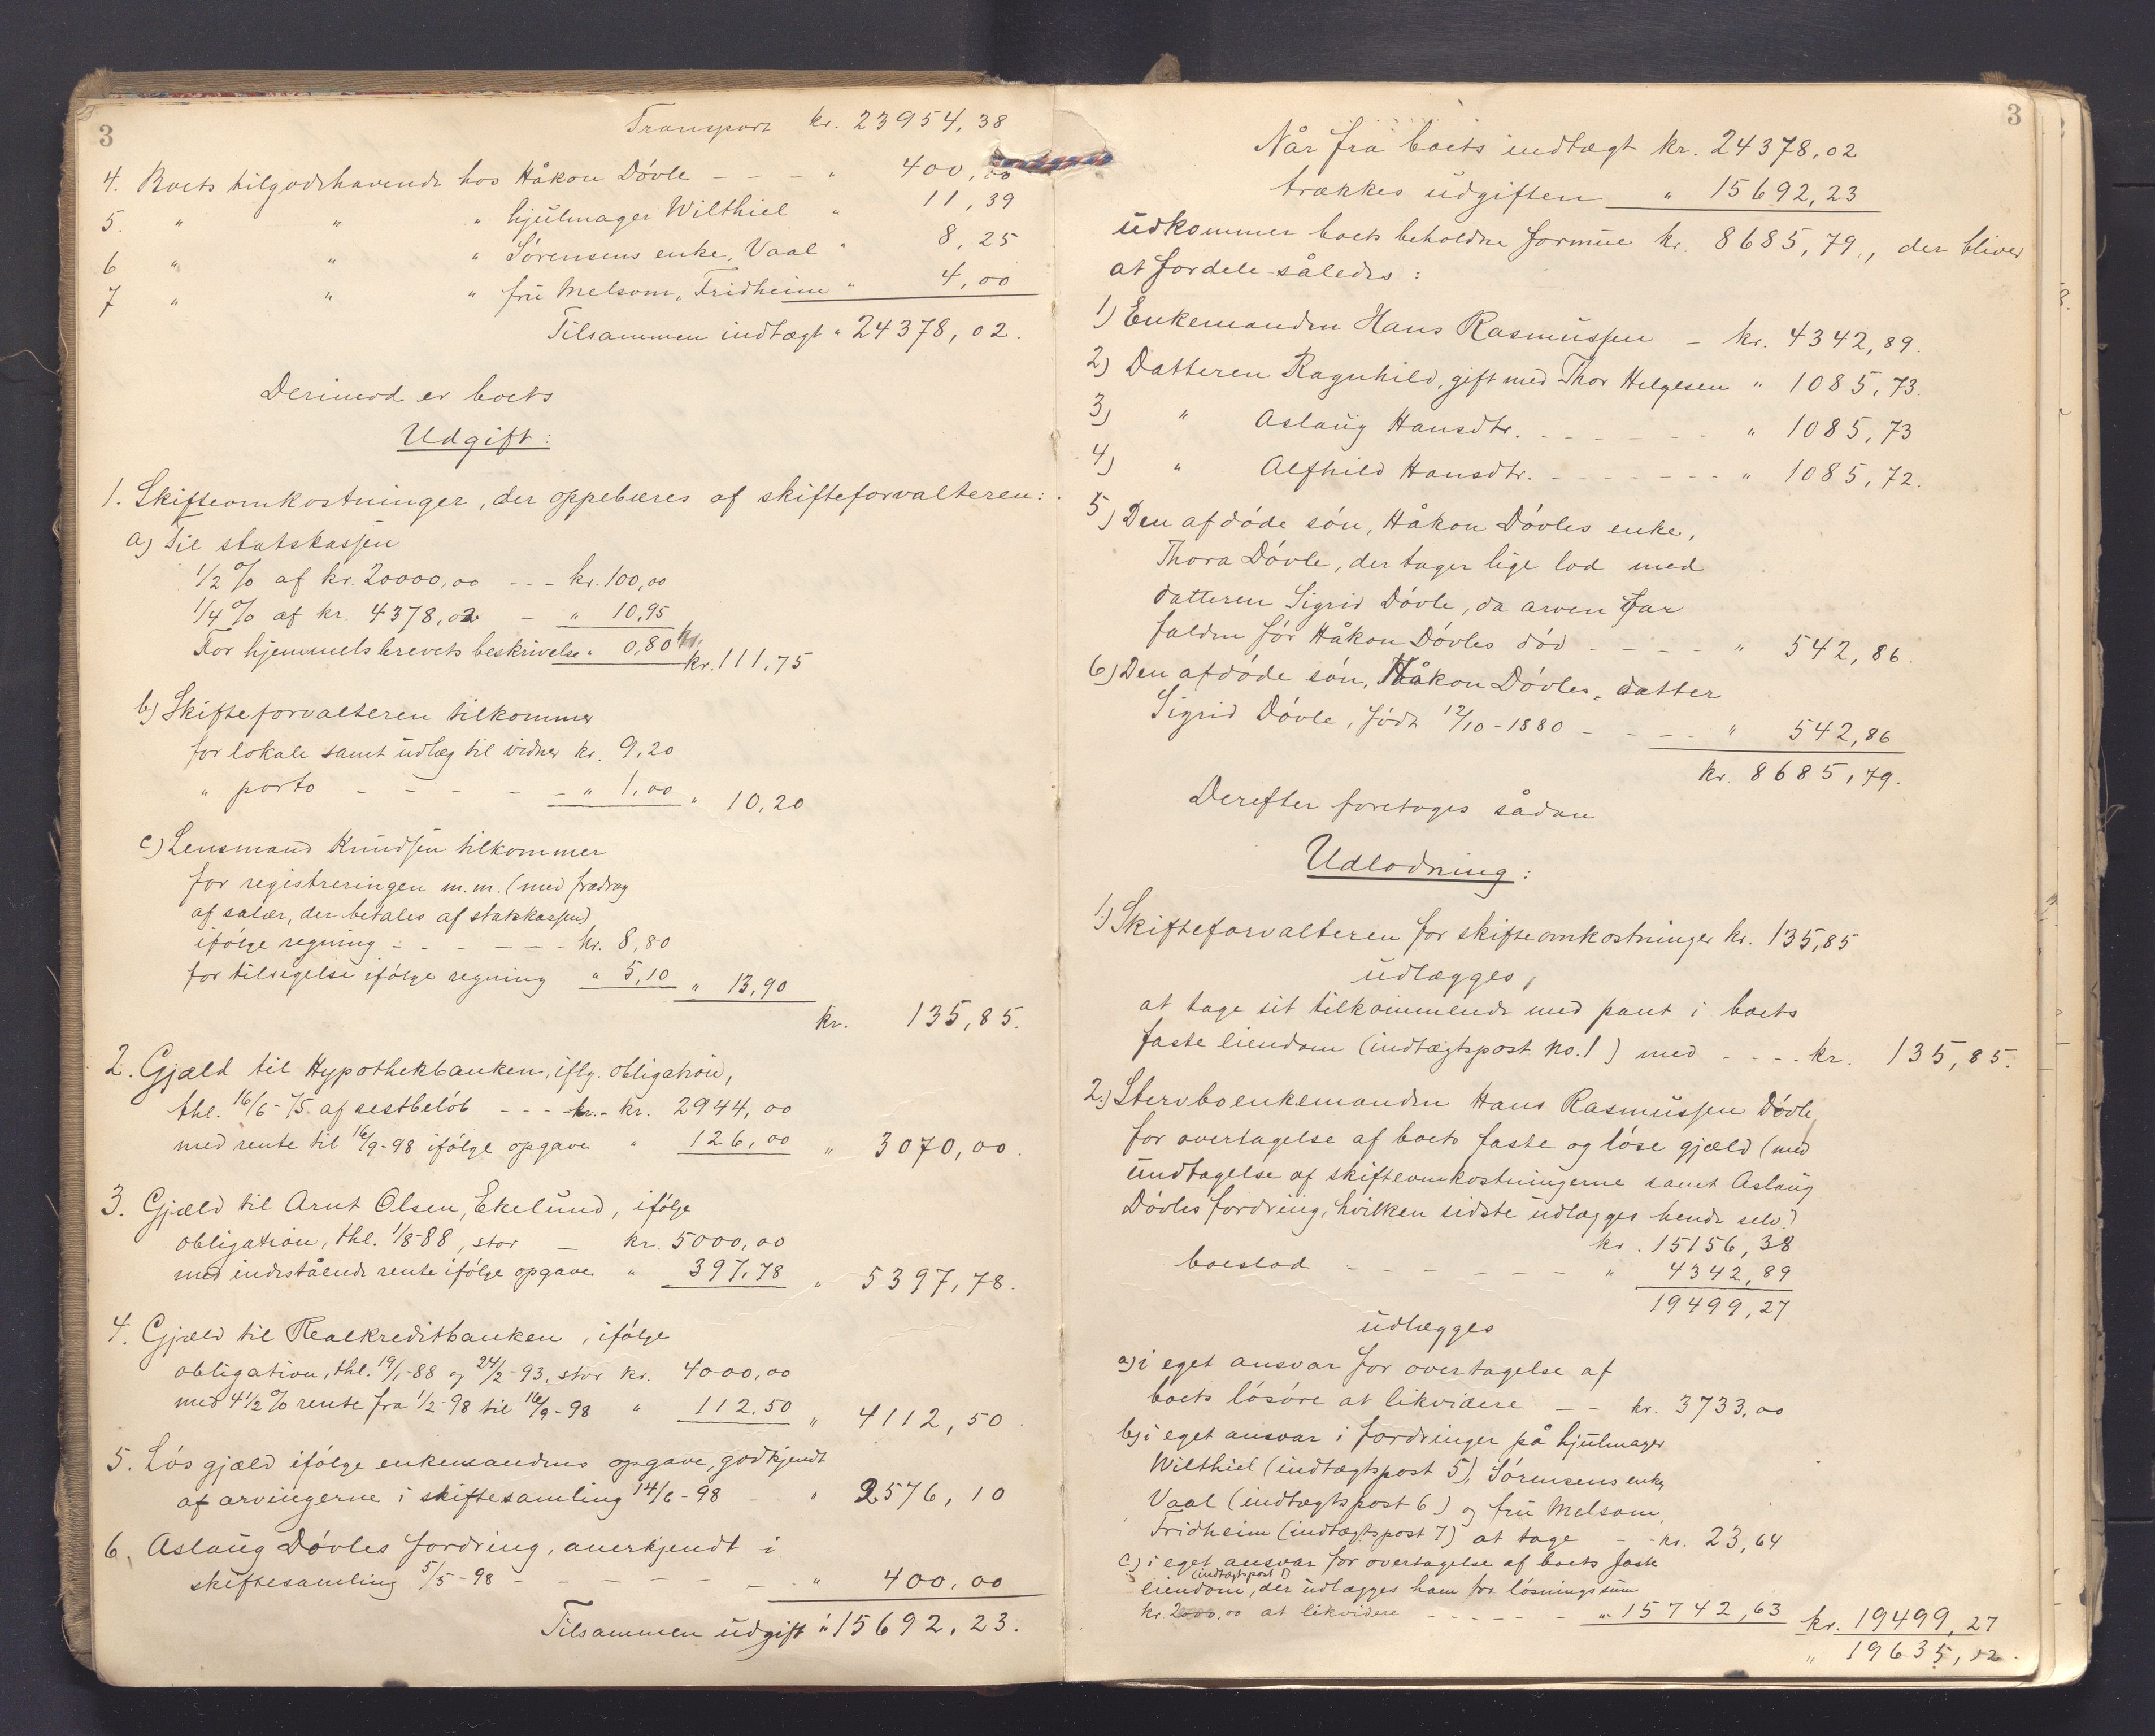 3
Transport kr. 23954,38
4. Boets tilgodehavende hos Håkon Dövle - - - " 400,00
5. " " " hjulmager Wilthiel " 11,39
6 " " " Sörensens enke, Vaal " 8,25
7 " " " fru Melsom, Fridheim " 4,00
Tilsammen indtægt " 24378,02.
Derimod er boets
Udgift:
1. Skifteomkostninger, der oppebæres af skifteforvalteren:
a) Til statskassen
1/2 % af kr. 20000,00 - - - kr. 100,00
1/4 % af kr. 4378,02 - " 10,95
For hjemmelsbrevets beskrivelse " 0,80
kr. 111,75
b) Skifteforvalteren tilkommer
for lokale samt udlæg til vidner kr. 9,20
" porto - - - - - - " 1,00 " 10,20
c) Lensmand Knudsen tilkommer
for registreringen m.m. (med fradrag
af salær, der betales af statskassen)
ifölge regning - - - - - - kr. 8,80
for tilsigelse ifölge regning " 5,10 " 13,90
kr. 135,85.
2. Gjæld til Hypothekbanken, iflg. obligation,
thl. 16/6-75. af restbelöb - - - kr. 2944,00
med rente til 16/9-98 ifölge opgave " 126,00 " 3070,00.
3. Gjæld til Arnt Olsen, Ekelund, ifölge
obligation, thl. 1/8-88, stor - kr. 5000,00
med indestående rente ifölge opgave " 397,78 " 5397,78.
4. Gjæld til Realkreditbanken, ifölge
obligation, thl. 19/1-88 og 24/2-93, stor kr. 4000,00
med 4 1/2 % rente fra 1/2-98 til 16/9-98 " 112,50 " 4112,50.
5. Lös gjæld ifölge enkemandens opgave, godkjendt
af arvingerne i skiftesamling 14/6-98 - - " 2576,10
6. Aslaug Dövles fordring, anerkjendt i
skiftesamling 5/5-98 - - - - - - " 400,00
Tilsammen udgift " 15692,23.
3
Når fra boets indtægt kr. 24378,02
trækkes udgiften " 15692,23
udkommer boets beholdne formue kr. 8685,79., der bliver
at fordele således:
1) Enkemanden Hans Rasmussen - kr. 4342,89.
2) Datteren Ragnhild, gift med Thor Helgesen " 1085,73.
3) " Aslaug Hansdtr. - - - - - - " 1085,73
4) " Alfhild Hansdtr. - - - - - - - " 1085,72.
5) Den afdöde sön, Håkon Dövles enke,
Thora Dövle, der tager lige lod med
datteren Sigrid Dövle, da arven far
falden för Håkon Dövles död - - - - " 542,86.
6) Den afdöde sön, Håkon Dövles datter
Sigrid Dövle, födt 12/10-1880 - - - - " 542,86
kr. 8685,79.
Derefter foretages sådan
Udlodning:
1) Skifteforvalteren for skifteomkostninger kr. 135,85
udlægges,
at tage sit tilkommende med pant i boets
faste eiendom (indtægtspost no. 1) med - - - - kr. 135,85.
2.) Stervboenkemanden Hans Rasmussen Dövle
for overtagelse af boets faste og löse gjæld (med
undtagelse af skifteomkostningerne samt Aslaug
Dövles fordring, hvilken sidste udlægges hende selv)
kr. 15156,38
boeslod - - - - - - - " 4342,89
19499,27
udlægges
a) i eget ansvar for overtagelse af
boets lösöre at likvidere - - kr. 3733,00
b) i eget ansvar i fordringer på hjulmager
Wilthiel (indtægtspost 5), Sörensens enke,
Vaal (indtægtspost 6) og fru Melsom,
Fridheim (indtægtspost 7) at tage - - kr. 23,64
c) i eget ansvar for overtagelse af boets faste
(indtægtspost 1)
eiendom, der udlægges ham for lösningssum
kr. 20000,00 at likvidere - - - - - - " 15742,63 kr. 19499,27
" 19635,12.